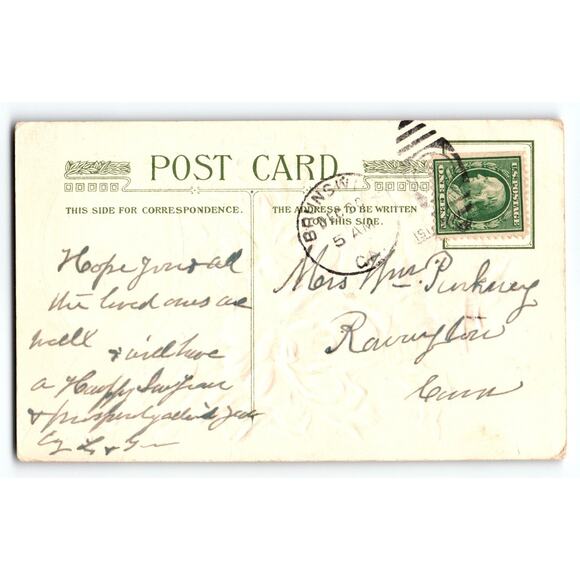 POST CARD
THIS SIDE FOR CORRESPONDENCE.
THE ADDRESS TO BE WRITTEN
THIS SIDE.
BRUNSWI
5 AM
GA
U.S. POSTAGE
ONE CENT
Hope you & all
the loved ones are
well
& will have
a Happy New Year
&
Mrs Wm Pinkney
Conn